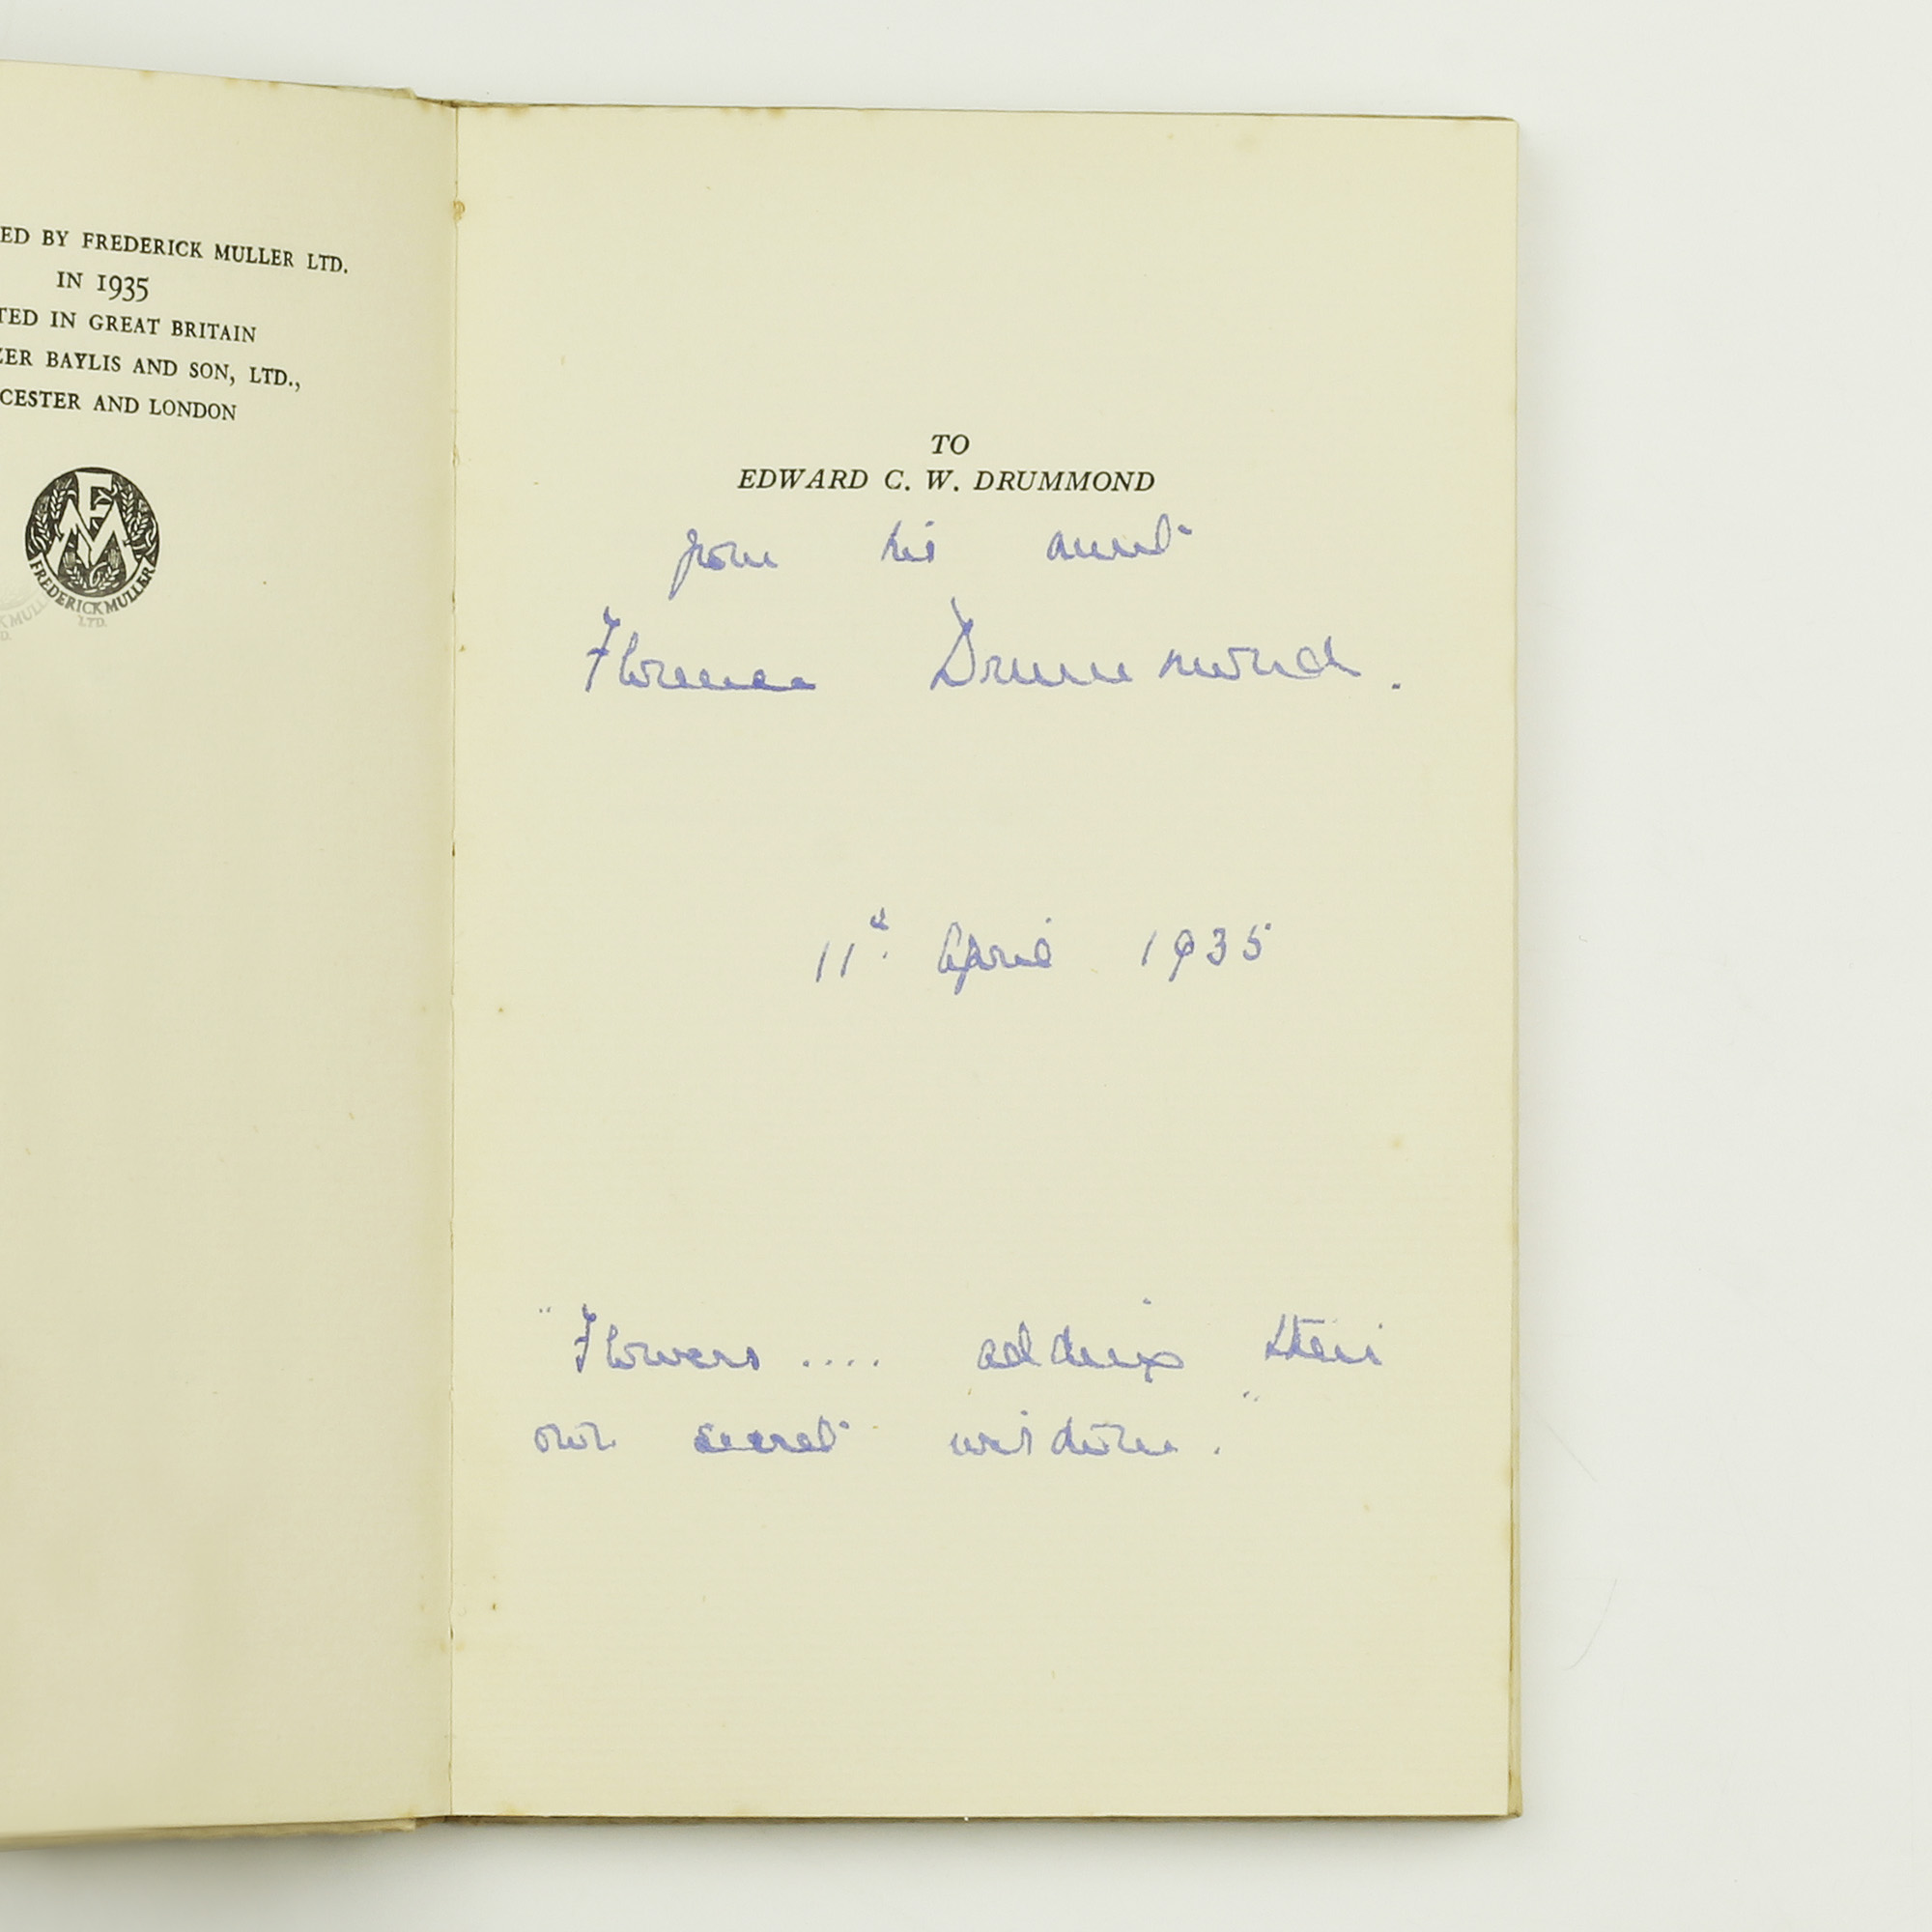 ED BY FREDERICK MULLER LTD.
IN 1935
TED IN GREAT BRITAIN
ZER BAYLIS AND SON, LTD.,
CESTER AND LONDON
FM
FREDERICK MULLER
LTD.
TO
EDWARD C. W. DRUMMOND
from his aunt
Florence Drummond.
11th. April 1935
"Flowers .... adding their
own secret wisdom."